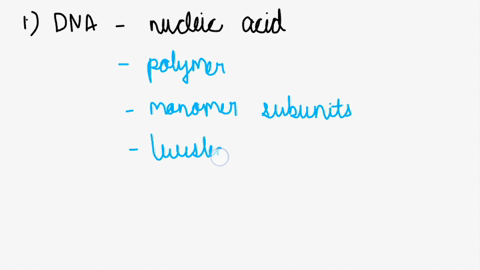 1) DNA - nucleic acid
- polymer
- monomer subunits
-